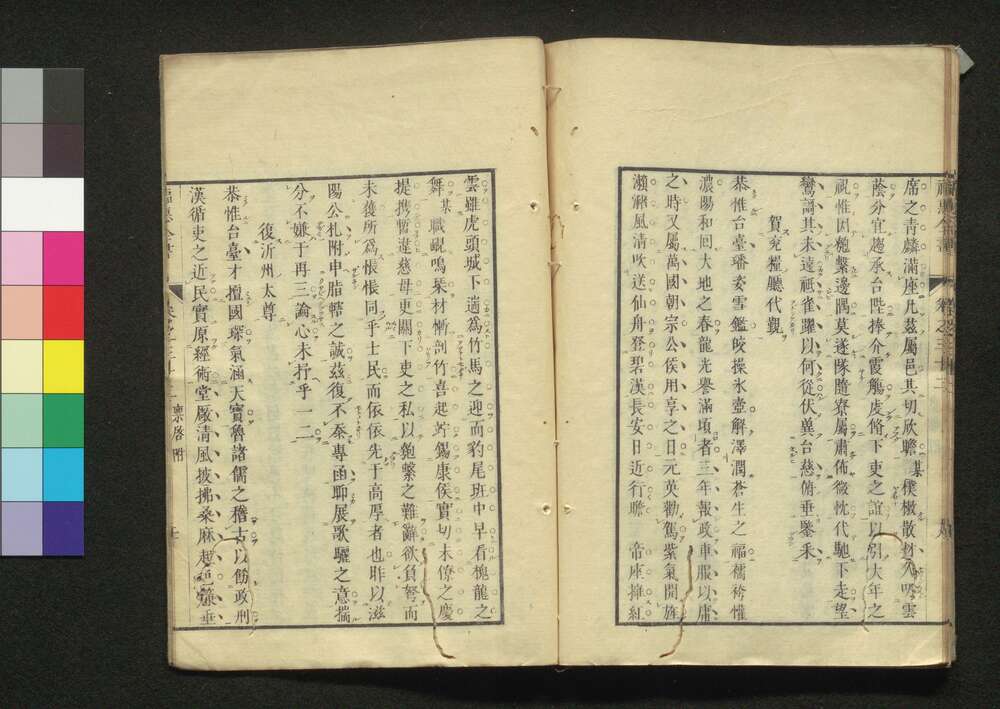 席之青麟滿座凡茲屬邑其切欣瞻某僕樕散材入吸雲
蔭分宜趨承台陛捧介霞觴虔脩下吏之誼以引大年之
祝惟因匏繫邊隅莫遂隊隨寮屬肅佈微忱代馳下走望
鸞謌其未遠祗雀躍以何從伏冀台慈俯垂鑒釆
賀兗糧廳代覲
恭惟台臺璠姿雪鑑皎操氷壺解澤潤蒼生之福襦袴懽
濃陽和回大地之春龍光譽滿頃者三年報政車服以庸
之時又屬萬國朝宗公侯用享之日元英勸駕紫氣開旌
瀨瀨風清吹送仙舟登碧漢長安日近行瞻 帝座擁紅
雲雖虎頭城下遄爲竹馬之迎而豹尾班中早看槐龍之
舞某職覗鳴琹材慚剖竹喜起竚錫康侯實切末僚之慶
提携暫違慈母更關下吏之私以匏繫之難辭欲負弩而
未獲所爲悵悵同乎士民而依依先于高厚者也昨以滋
陽公札附申脂轄之誠茲復不㤗專函聊展歌驪之意揣
分不嫌于再三論心未抒乎一二
復沂州太尊
恭惟台臺才擅國琛氣涵天寶魯諸儒之稽古以飭政刑
漢循吏之近民實原經術堂嚴清風披拂桑麻超然簾垂
禀啓附